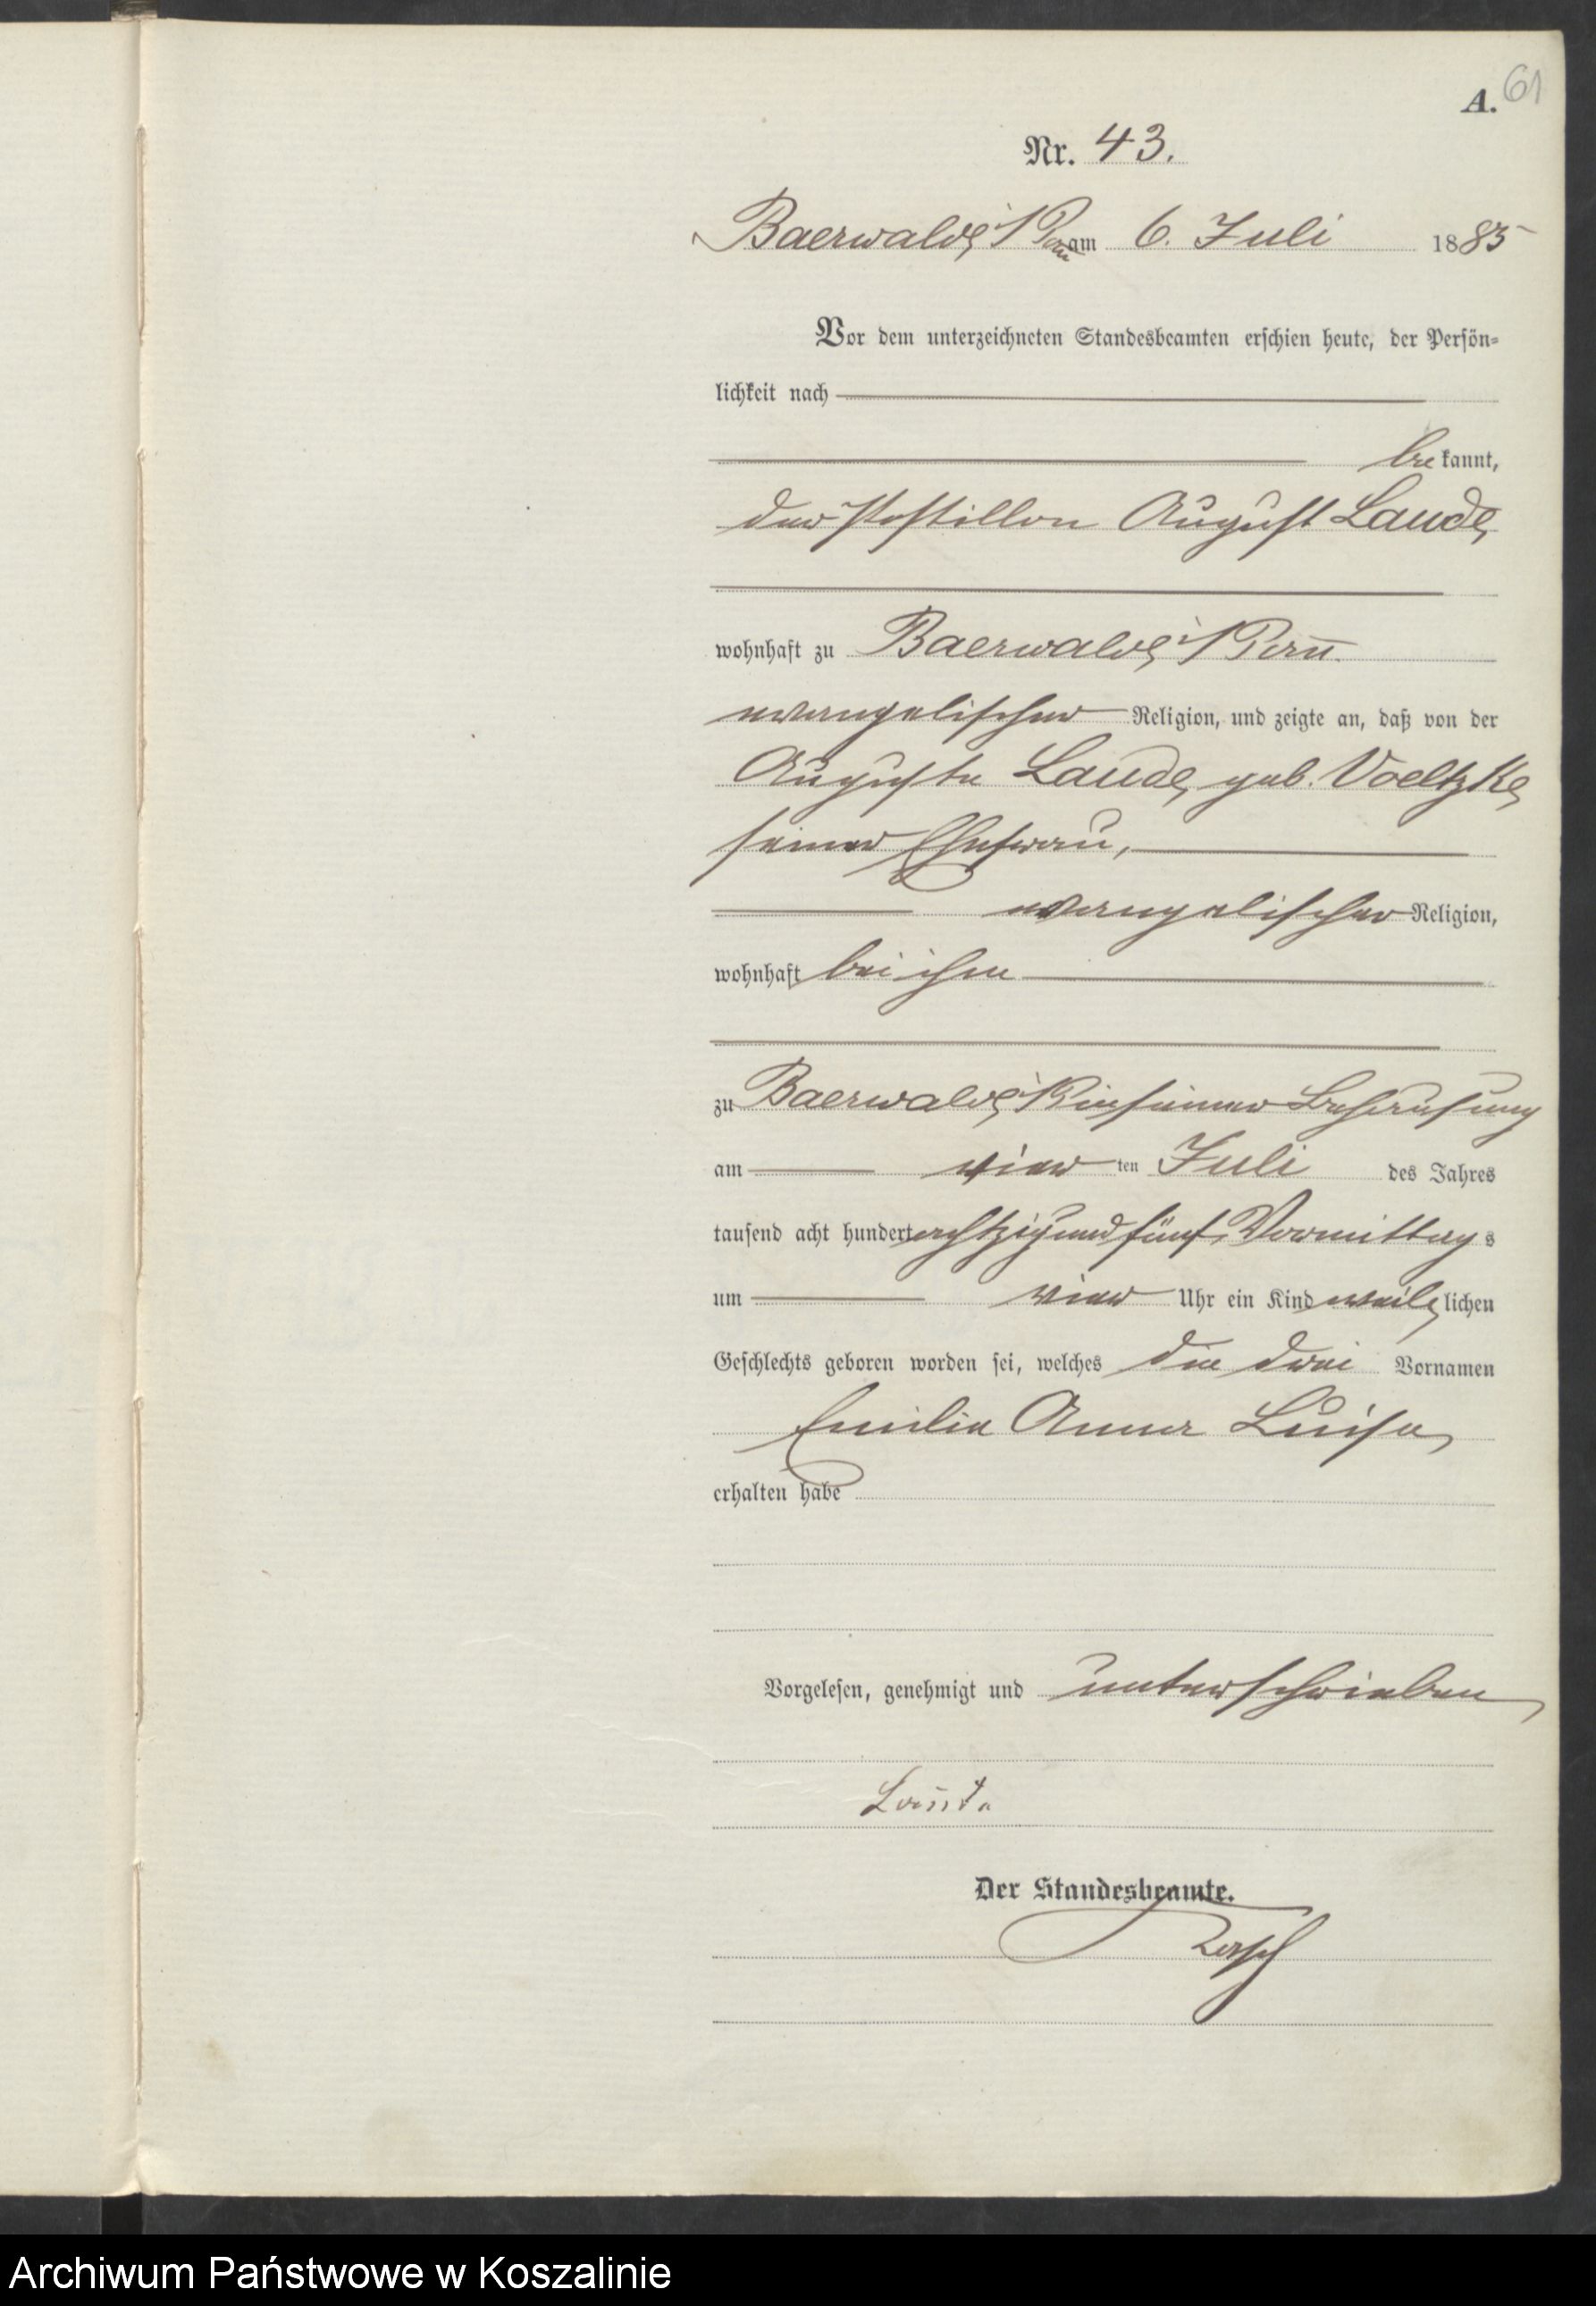 A. 61
Nr. 43.
Baerwalde i/Pom am 6. Juli 1885
Vor dem unterzeichneten Standesbeamten erschien heute, der Persön=
lichkeit nach
bekannt,
der Postillon August Laude,
wohnhaft zu Baerwalde i/Pom̄.
evangelischer Religion, und zeigte an, daß von der
Auguste Laude, geb. Voeltzke,
seiner Ehefrau,
evangelischer Religion,
wohnhaft bei ihm
zu Baerwalde in seiner Behausung
am vier ten Juli des Jahres
tausend acht hundert achtzig und fünf, Vormittags
um vier Uhr ein Kind weiblichen
Geschlechts geboren worden sei, welches die drei Vornamen
Emilie Anna Luise,
erhalten habe
Vorgelesen, genehmigt und unterschrieben
Laude
Der Standesbeamte.
Archiwum Państwowe w Koszalinie